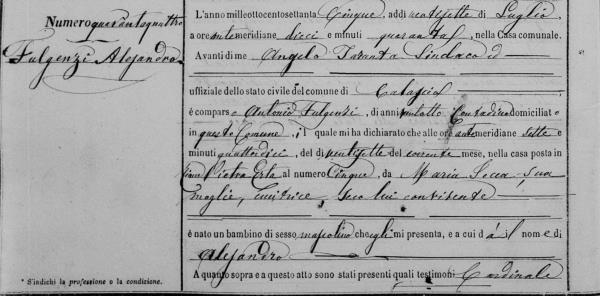 Numero quarantaquattro
Fulgenzi Alejandro
L'anno milleottocentosettanta Cinque, addì ventisette di Luglio
a ore antemeridiane dieci e minuti quaranta, nella Casa comunale.
Avanti di me Angelo Taranta Sindaco ed
uffiziale dello stato civile del comune di
è comparso Antonio Fulgenzi, di anni ventotto Contadino domiciliato
in questo Comune, il quale mi ha dichiarato che alle ore antemeridiane sette e
minuti quattordici, del dì ventisette del corrente mese, nella casa posta in
Pietra Erta al numero Cinque, da Maria Secca sua
moglie, cucitrice, seco lui convivente
è nato un bambino di sesso mascolino che egli mi presenta, e a cui dà il nome di
Alejandro
A quanto sopra e a questo atto sono stati presenti quali testimoni Cardinale
* S'indichi la professione o la condizione.